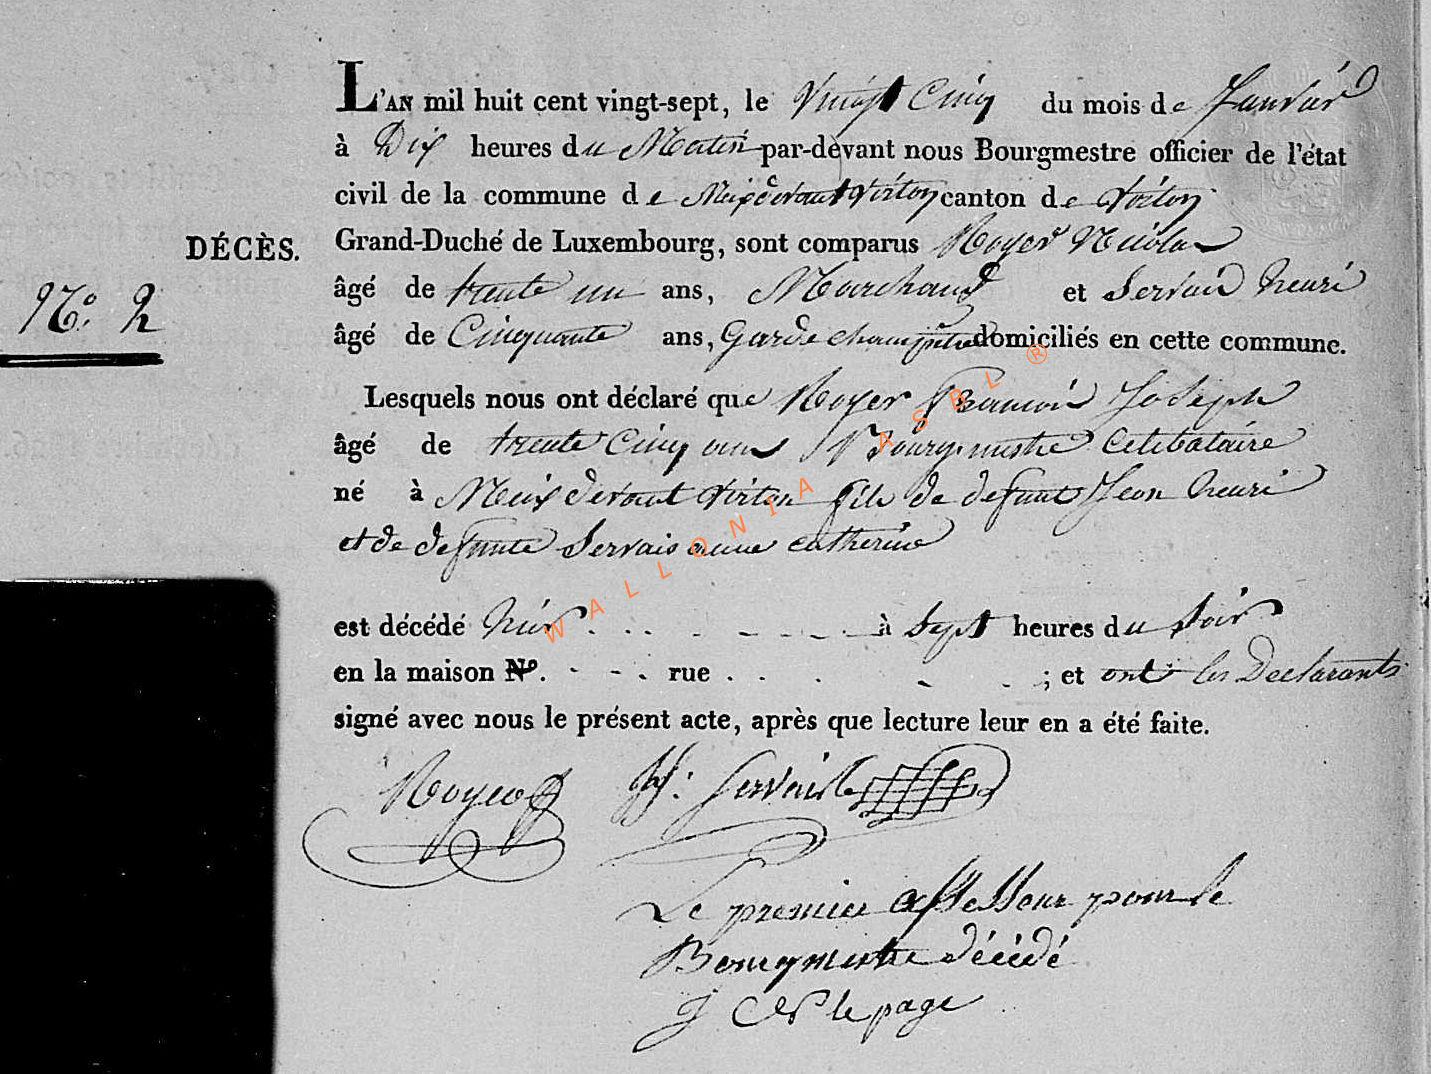 L'AN mil huit cent vingt-sept, le Vingt Cinq du mois de Janvier
à Dix heures du Matin par-devant nous Bourgmestre officier de l'état
civil de la commune de Meix devant Virton canton de Virton
DÉCÈS. Grand-Duché de Luxembourg, sont comparus Royer Nicolas
N.o 2 âgé de trente un ans, Marchand et Servais henri
âgé de Cinquante ans, Garde champetre domiciliés en cette commune.
Lesquels nous ont déclaré que Royer François Joseph
âgé de trente Cinq ans Bourgmestre Celibataire
né à Meix devant Virton fils de defunt Jean henri
et de defunte Servais anne catherine
est décédé hier à Sept heures du Soir
en la maison N.o rue ; et ont les Declarants
signé avec nous le présent acte, après que lecture leur en a été faite.
Royer H: Servais
Le premier assesseur pour le
Bourgmestre décédé
J le page
WALLONIA ASBL ®